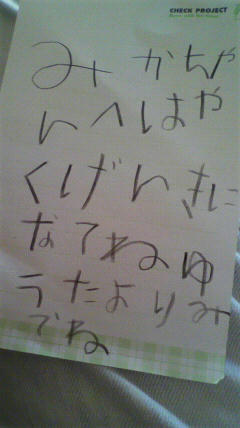 CHECK PROJECT
みかちゃ
んへはや
くげんきに
なてねゆ
うたよりみ
でね